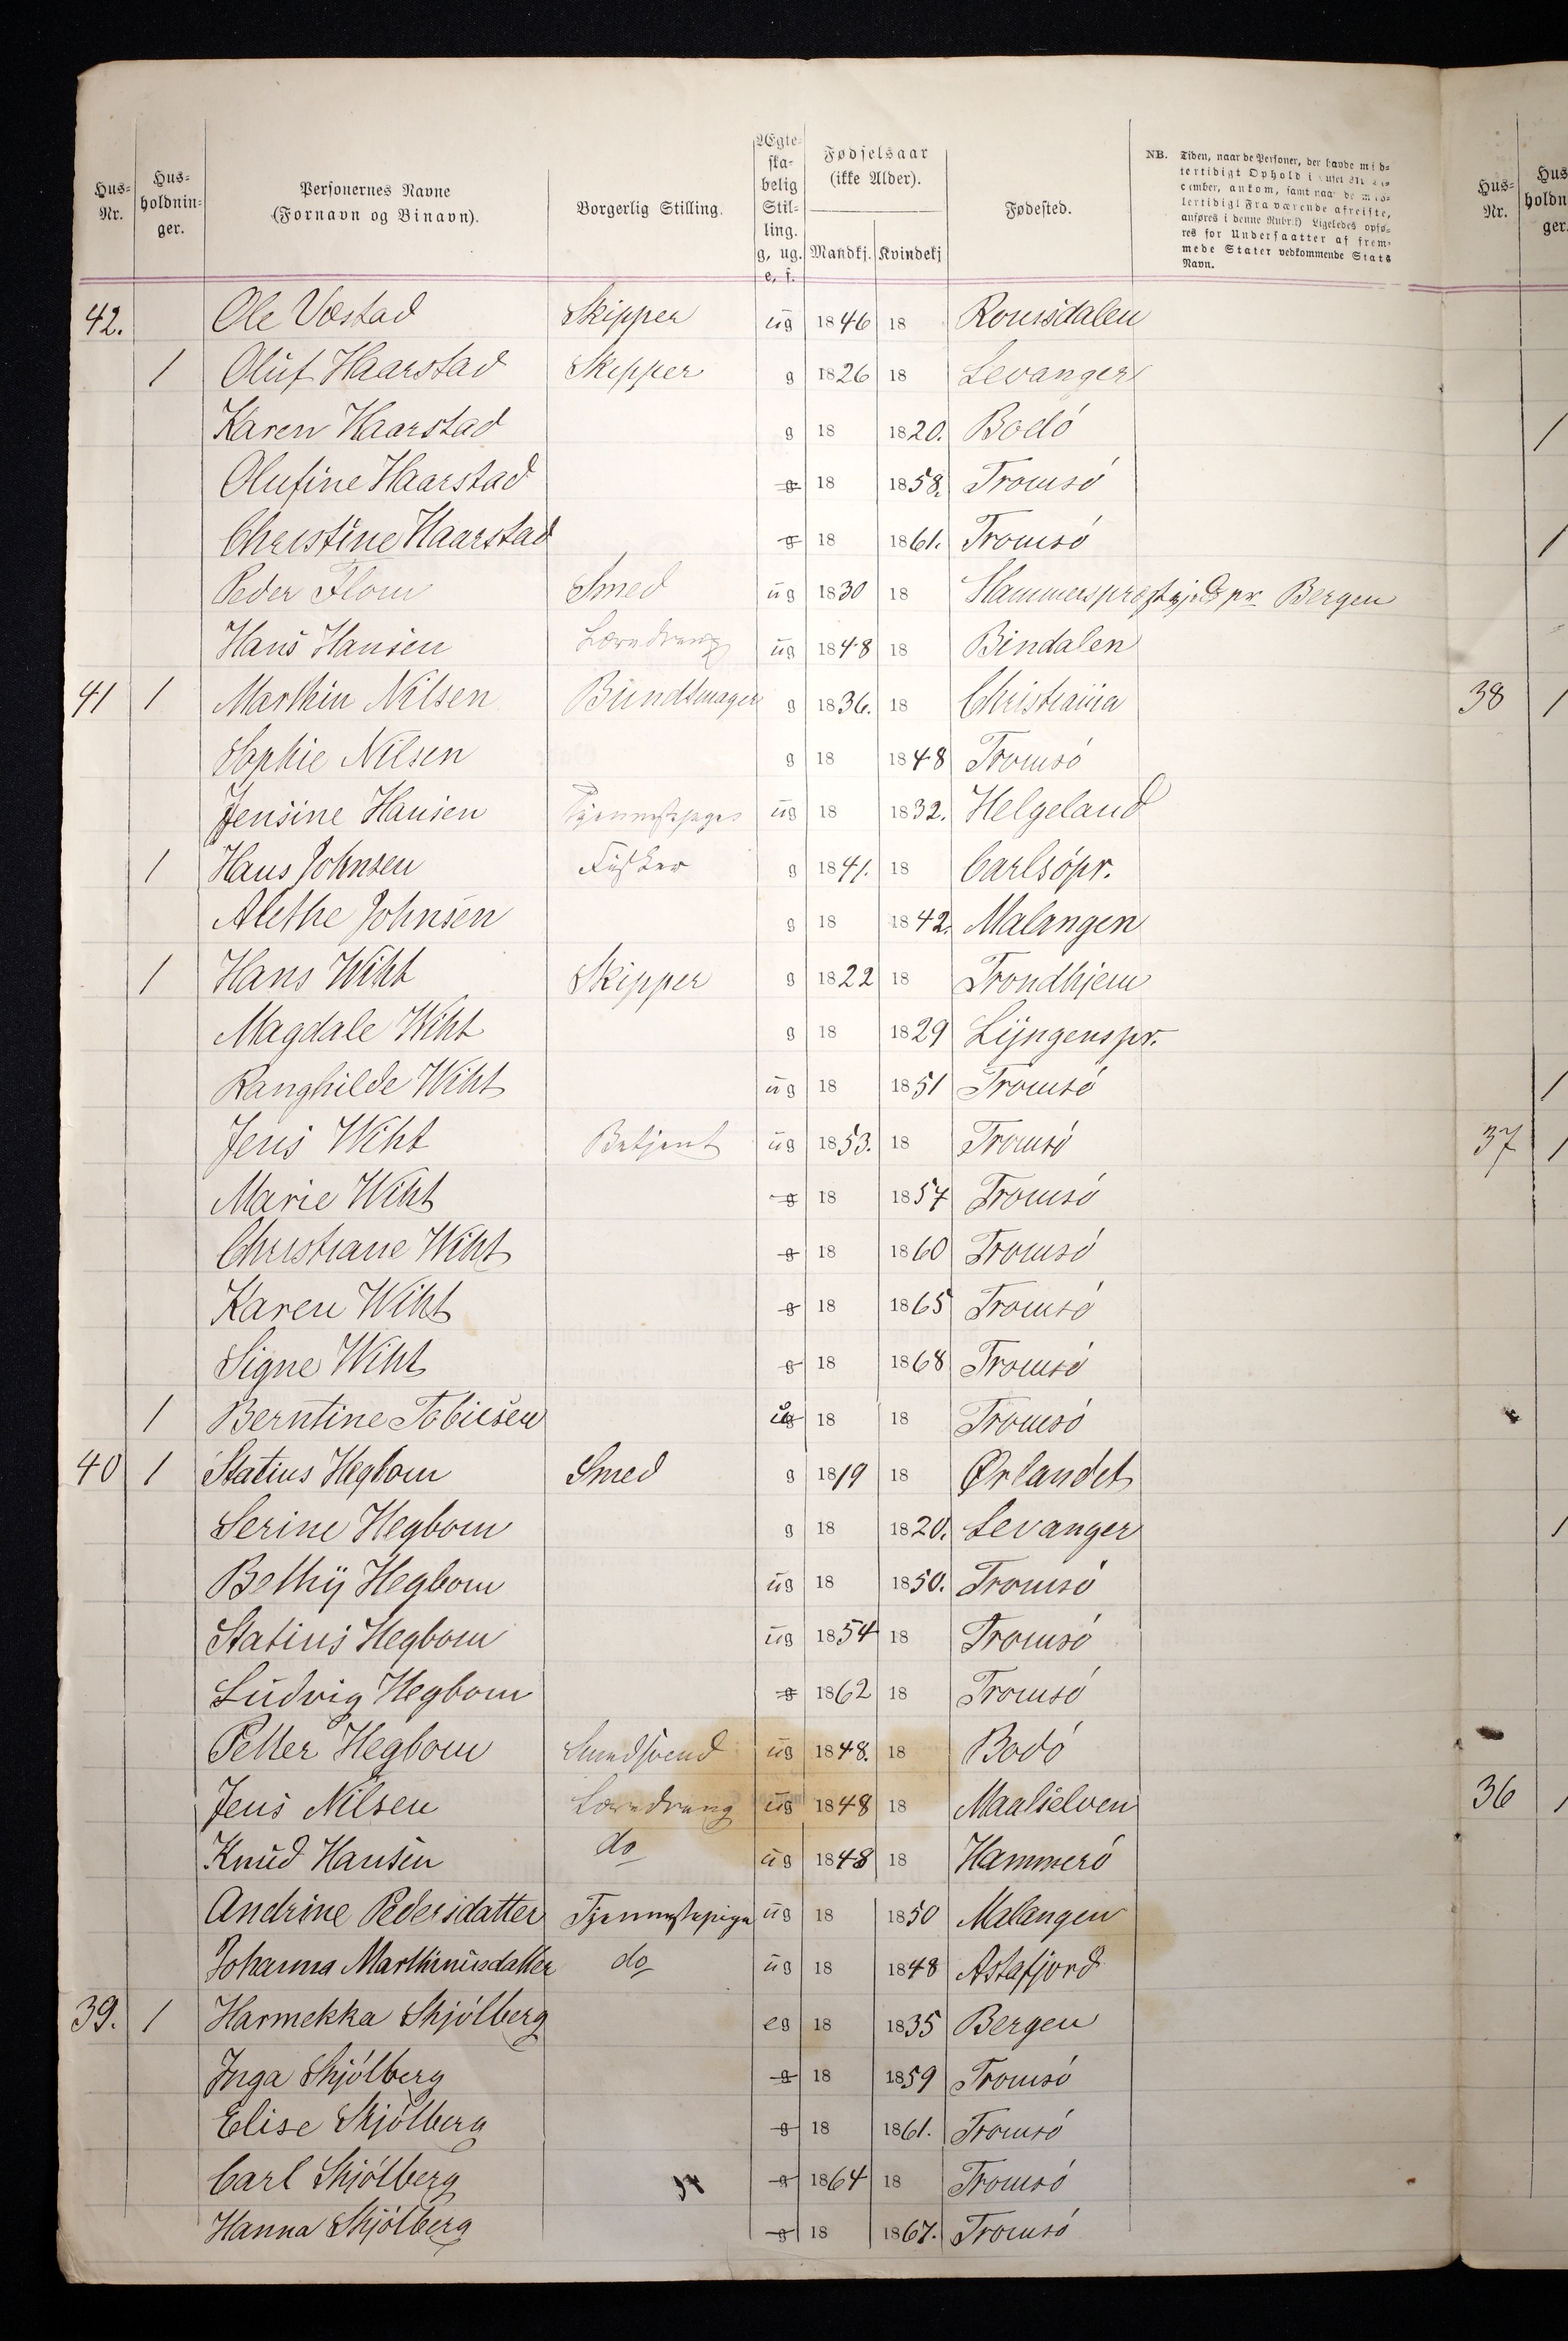 Hus-Nr. Hus-holdnin-ger. Personernes Navne (Fornavn og Binavn). Borgerlig Stilling. Ægte-ska-belig Stil-ling. g, ug. e, f. Fødselsaar (ikke Alder). Mandkj. Kvindekj Fødested. NB. Tiden, naar de Personer, der havde mid-
lertidigt Ophold i
cember, ankom, samt naar de mid-
lertidigt Fraværende afreiste,
anføres i denne Rubrik) Ligeledes opfø-
res for Undersaatter af frem-
mede Stater vedkommende Stats
Navn.
42. Ole Væstad Skipper ug 1846 18 Romsdalen
1 Oluf Haarstad Skipper g 1826 18 Levanger
Karen Haarstad g 18 1820. Bodó
Olufine Haarstad g 18 1858. Tromsó
Christine Haarstad g 18 1861. Tromsó
Peder Flom Smed ug 1830 18 Hammerspræstgjeld pr Bergen
Hans Hansen Læredreng ug 1848 18 Bindalen
41 1 Marthin Nilsen Bundtmager g 1836. 18 Christiania
Sophie Nilsen g 18 1848 Tromsó
Jensine Hansen ug 18 1832. Helgeland
1 Hans Johnsen Fisker g 1841. 18 Carlsópr.
Alethe Johnsen g 18 1842. Malangen
1 Hans Wiht Skipper g 1822 18 Trondhjem
Magdale Wiht g 18 1829 Lyngenspr.
Ranghilde Wiht ug 18 1851 Tromsó
Jens Wiht Betjent ug 1853. 18 Tromsó
Marie Wiht g 18 1857 Tromsó
Christiane Wiht g 18 1860 Tromsó
Karen Wiht g 18 1865 Tromsó
Signe Wiht g 18 1868 Tromsó
1 Berntine Tobiesen 18 18 Tromsó
40 1 Statius Hegbom Smed g 1819 18 Ørlandet
Serine Hegbom g 18 1820. Levanger
Bethy Hegbom ug 18 1850. Tromsó
Statius Hegbom ug 1854 18 Tromsó
Ludvig Hegbom g 1862 18 Tromsó
Petter Hegbom Smedsvend ug 1848. 18 Bodó
Jens Nilsen Læredreng ug 1848 18 Maalselven
Knud Hansen do ug 1848 18 Hammeró
Andrine Pedersdatter Tjenestepige ug 18 1850 Malangen
Johanna Marthinusdatter do ug 18 1848 Astafjord
39. 1 Harmekka Skjólberg eg 18 1835 Bergen
Inga Skjólberg g 18 1859 Tromsó
Elise Skjólberg g 18 1861. Tromsó
Carl Skjólberg g 1864 18 Tromsó
Hanna Skjólberg g 18 1867. Tromsó
Hus-Nr. Hus holdn ger.
1
1
38 1
1
37 1
1
36 1